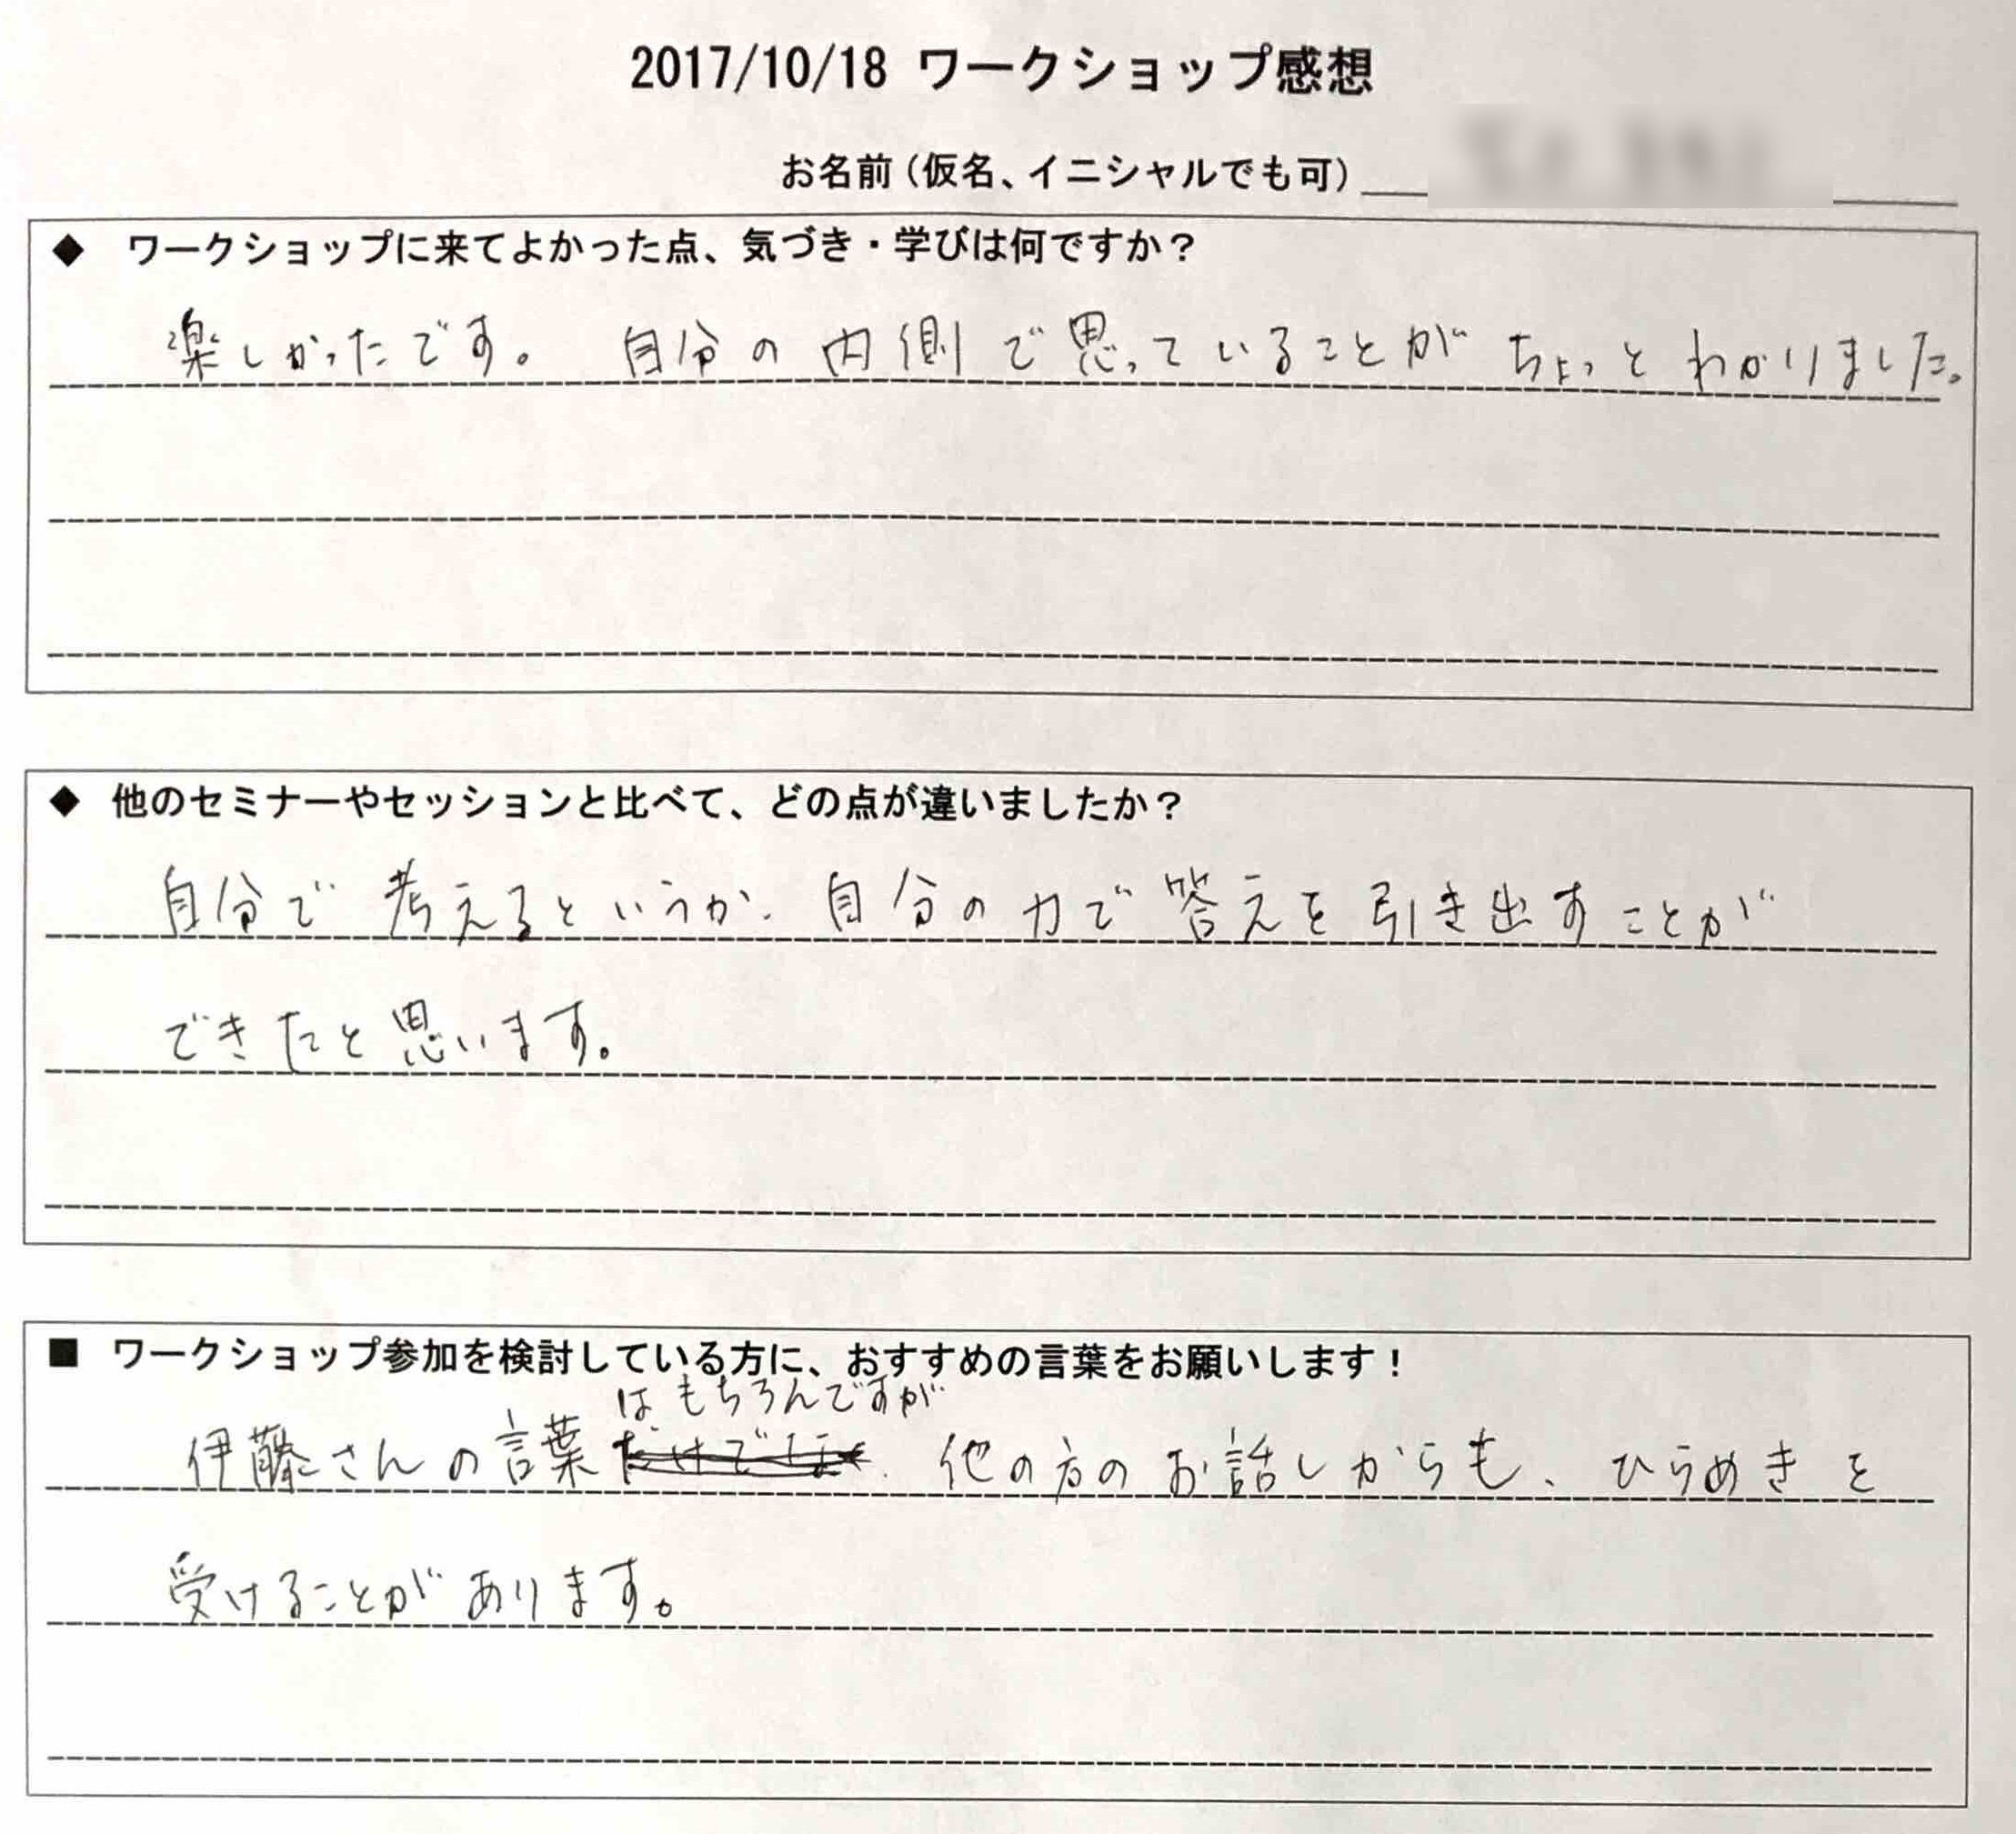 2017/10/18 ワークショップ感想
お名前（仮名、イニシャルでも可）
◆ ワークショップに来てよかった点、気づき・学びは何ですか？
楽しかったです。 自分の内側で思っていることがちょっとわかりました。
◆ 他のセミナーやセッションと比べて、どの点が違いましたか？
自分で考えるというか、自分の力で答えを引き出すことが
できたと思います。
■ ワークショップ参加を検討している方に、おすすめの言葉をお願いします！
はもちろんですが
伊藤さんの言葉だけでなく、他の方のお話しからも、ひらめきを
受けることがあります。